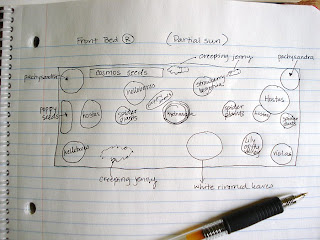 Front Bed R (Partial sun)
creeping jenny
pachysandra pachysandra
cosmos seeds
strawberry begonia
hellebores
Hostas
poppy seeds
hostas
spider plants
Hydrangea
spider plants
hostas
spider plants
hellebores
Lily of the valley
Hostas
creeping jenny
white rimmed leaves